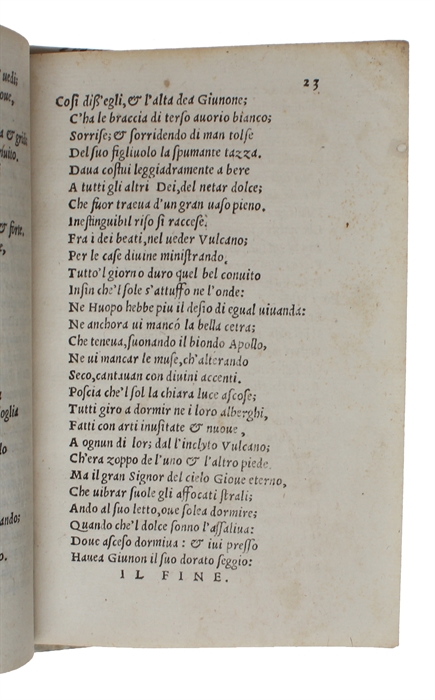 ' uedi;
oue,
a & gridi
riuito.
& forte.
e,
oglia
lo
ando;
o.
23
Cosi diß'egli, & l'alta dea Giunone;
C'ha le braccia di terso auorio bianco;
Sorrise; & sorridendo di man tolse
Del suo figliuolo la spumante tazza.
Daua costui leggiadramente a bere
A tutti gli altri Dei, del netar dolce;
Che fuor traeua d'un gran uaso pieno.
Inestinguibil riso si raccese
Fra i dei beati, nel ueder Vulcano;
Per le case diuine ministrando.
Tutto'l giorno duro quel bel conuito
Insin che'l sole s'attuffo ne l'onde:
Ne Huopo hebbe piu il desio di egual uiuanda:
Ne anchora ui mancò la bella cetra;
Che teneua, suonando il biondo Apollo,
Ne ui mancar le muse, ch'alterando
Seco, cantauan con diuini accenti.
Poscia che'l sol la chiara luce ascose;
Tutti giro a dormir ne i loro alberghi,
Fatti con arti inusitate & nuoue,
A ognun di lor; dal l'inclyto Vulcano;
Ch'era zoppo de l'uno & l'altro piede.
Ma il gran Signor del cielo Gioue eterno,
Che uibrar suole gli affocati strali;
Ando al suo letto, oue solea dormire;
Quando che'l dolce sonno l'assaliua:
Doue asceso dormiua: & iui presso
Hauea Giunon il suo dorato seggio:
IL FINE.